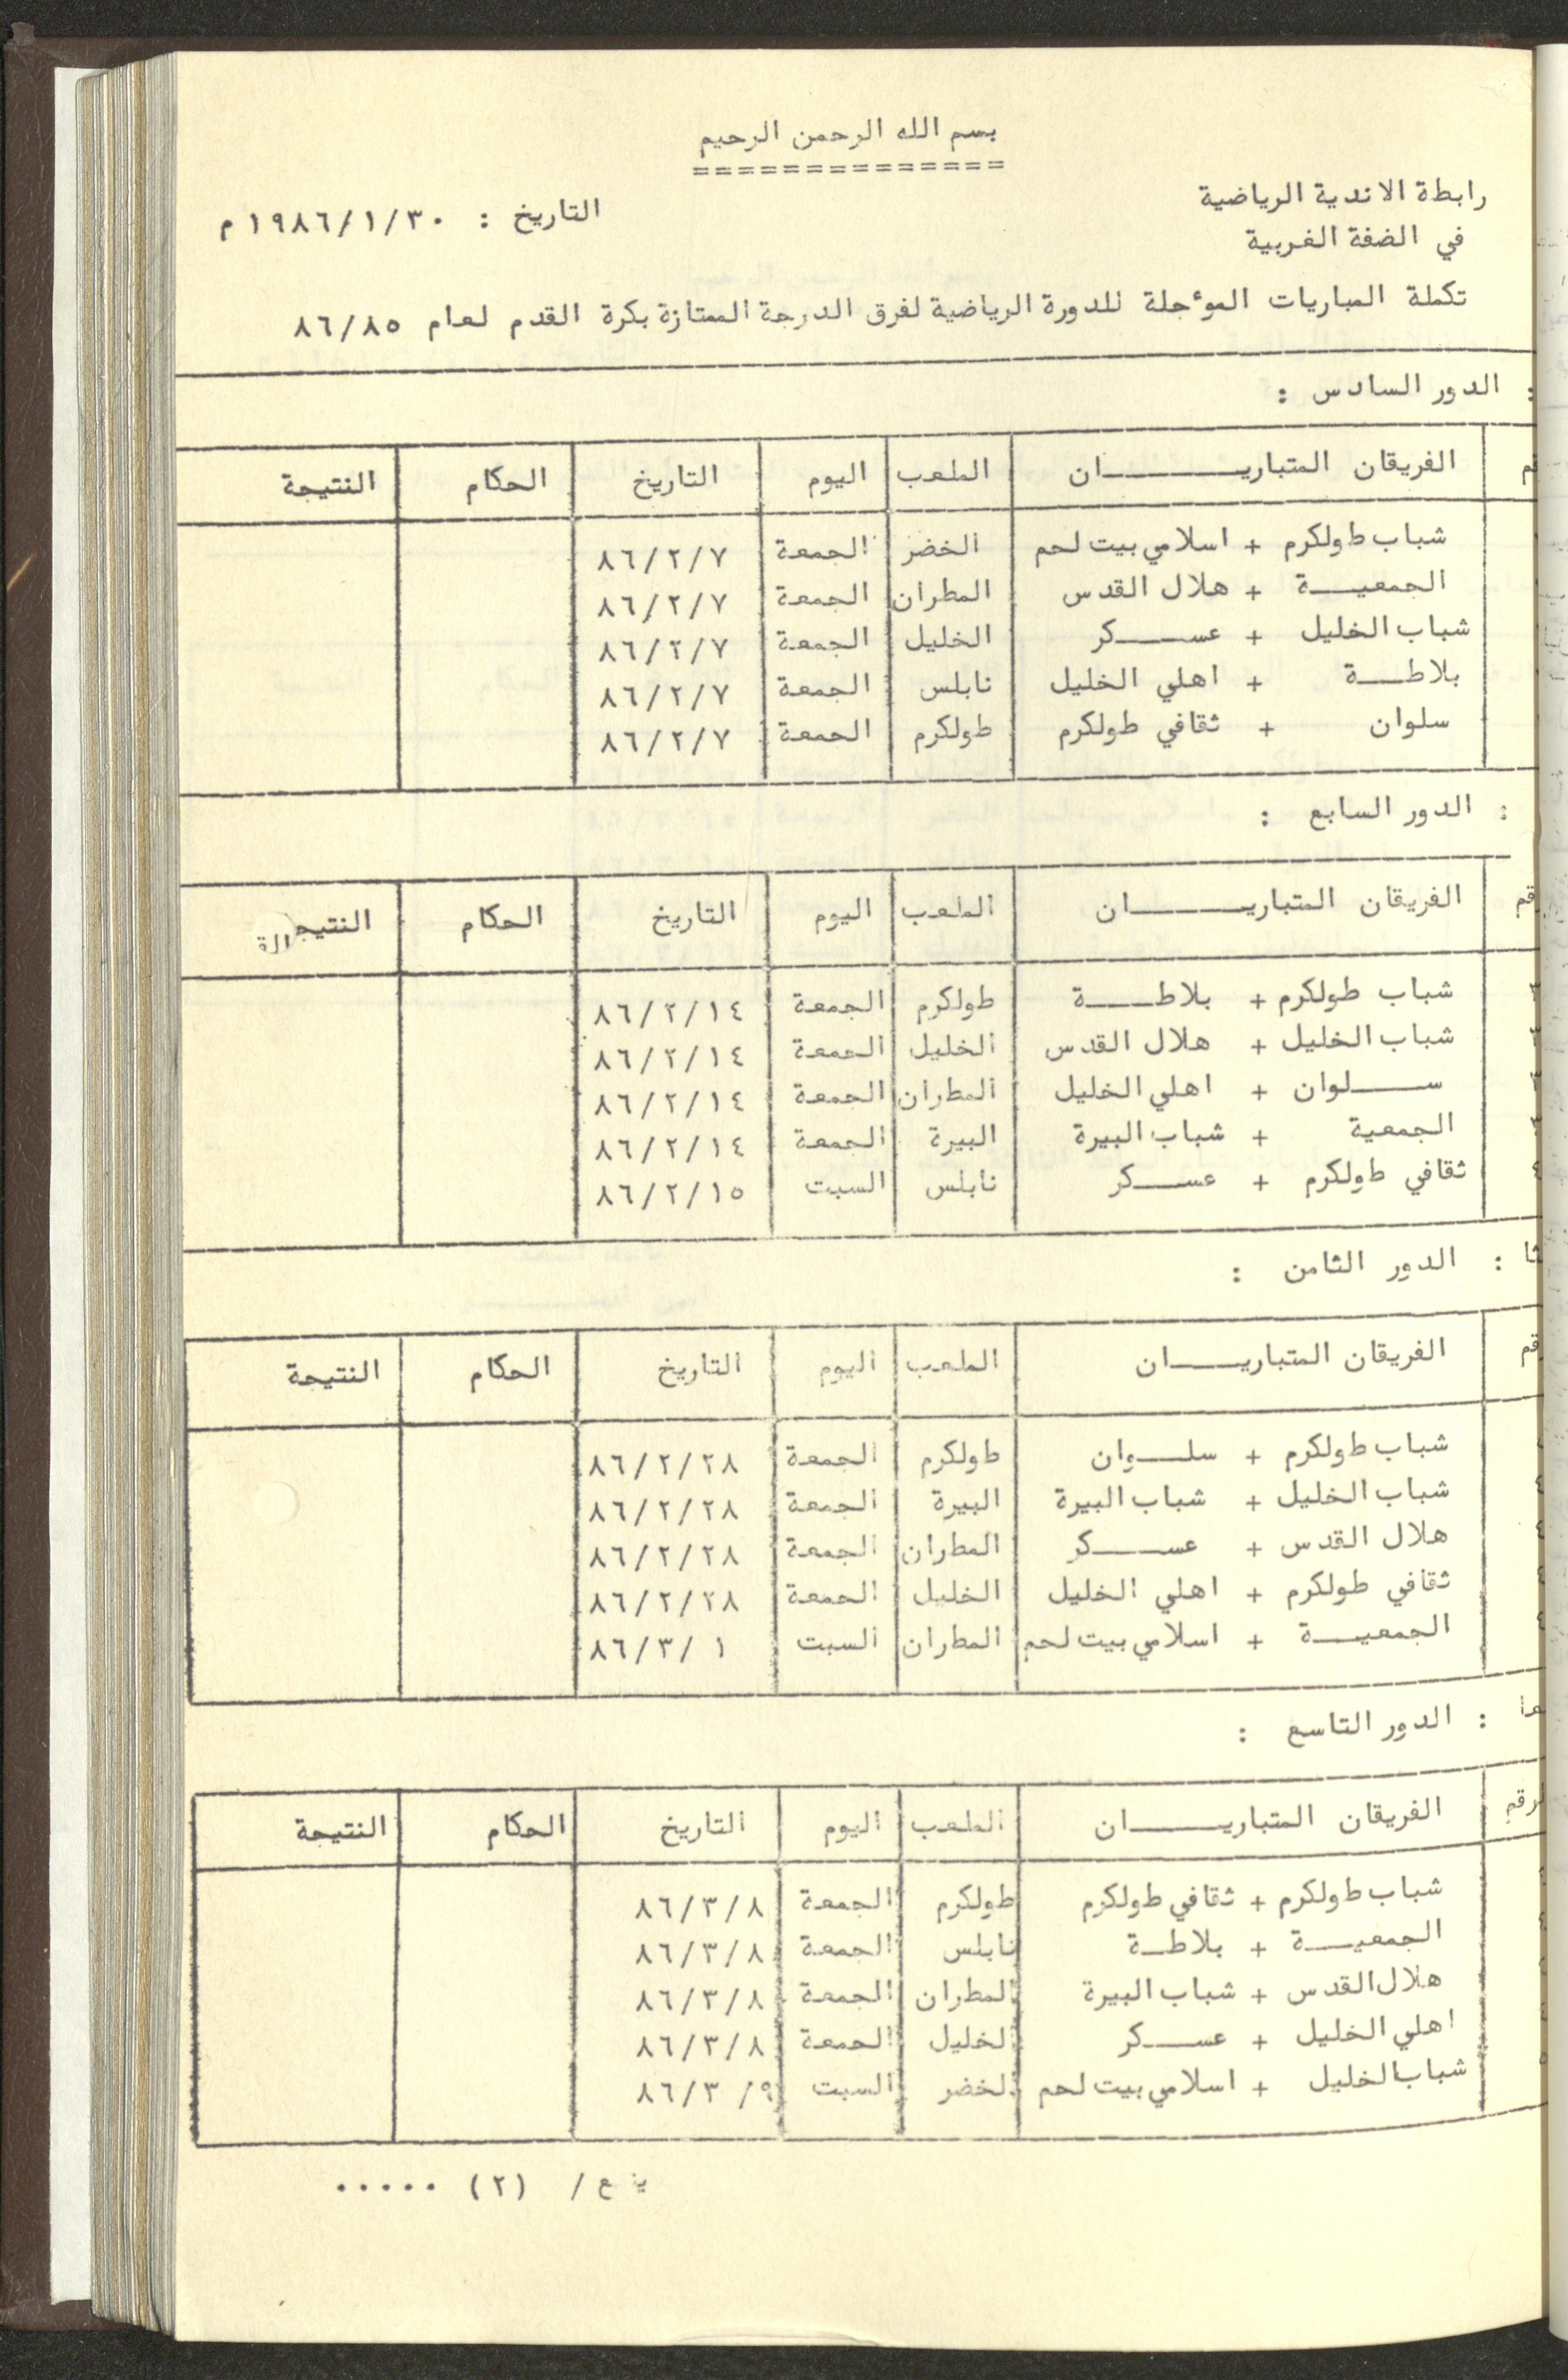 بسم الله الرحمن الرحيم
==============
رابطة الاندية الرياضية
في الضفة الغربية
التاريخ : ١٩٨٦/١/٣٠م
تكملة المباريات المؤجلة للدورة الرياضية لفرق الدرجة الممتازة بكرة القدم لعام ٨٦/٨٥
: الدور السادس :
الفريقان المتباريـــــــان الملعب اليوم التاريخ الحكام النتيجة
شباب طولكرم + اسلامي بيت لحم الخضر الجمعة ٨٦/٢/٧
الجمعيـــة + هلال القدس المطران الجمعة ٨٦/٢/٧
شباب الخليل + عســـكر الخليل الجمعة ٨٦/٢/٧
بلاطـــة + اهلي الخليل نابلس الجمعة ٨٦/٢/٧
سلوان + ثقافي طولكرم طولكرم الجمعة ٨٦/٢/٧
: الدور السابع :
الفريقان المتباريـــــــان الملعب اليوم التاريخ الحكام النتيجة
شباب طولكرم + بلاطـــة طولكرم الجمعة ٨٦/٢/١٤
شباب الخليل + هلال القدس الخليل الجمعة ٨٦/٢/١٤
ســـلوان + اهلي الخليل المطران الجمعة ٨٦/٢/١٤
الجمعية + شباب البيرة البيرة الجمعة ٨٦/٢/١٤
ثقافي طولكرم + عســـكر نابلس السبت ٨٦/٢/١٥
: الدور الثامن :
الفريقان المتباريـــــان الملعب اليوم التاريخ الحكام النتيجة
شباب طولكرم + سلـــوان طولكرم الجمعة ٨٦/٢/٢٨
شباب الخليل + شباب البيرة البيرة الجمعة ٨٦/٢/٢٨
هلال القدس + عســـكر المطران الجمعة ٨٦/٢/٢٨
ثقافي طولكرم + اهلي الخليل الخليل الجمعة ٨٦/٢/٢٨
الجمعيـــة + اسلامي بيت لحم المطران السبت ٨٦/٣/ ١
: الدور التاسع :
الرقم الفريقان المتباريـــــــان الملعب اليوم التاريخ الحكام النتيجة
شباب طولكرم + ثقافي طولكرم طولكرم الجمعة ٨٦/٣/٨
الجمعيـــة + بلاطـة نابلس الجمعة ٨٦/٣/٨
هلال القدس + شباب البيرة المطران الجمعة ٨٦/٣/٨
اهلي الخليل + عســـكر الخليل الجمعة ٨٦/٣/٨
شباب الخليل + اسلامي بيت لحم الخضر السبت ٨٦/٣ /٩
يتبع/ (٢) .....